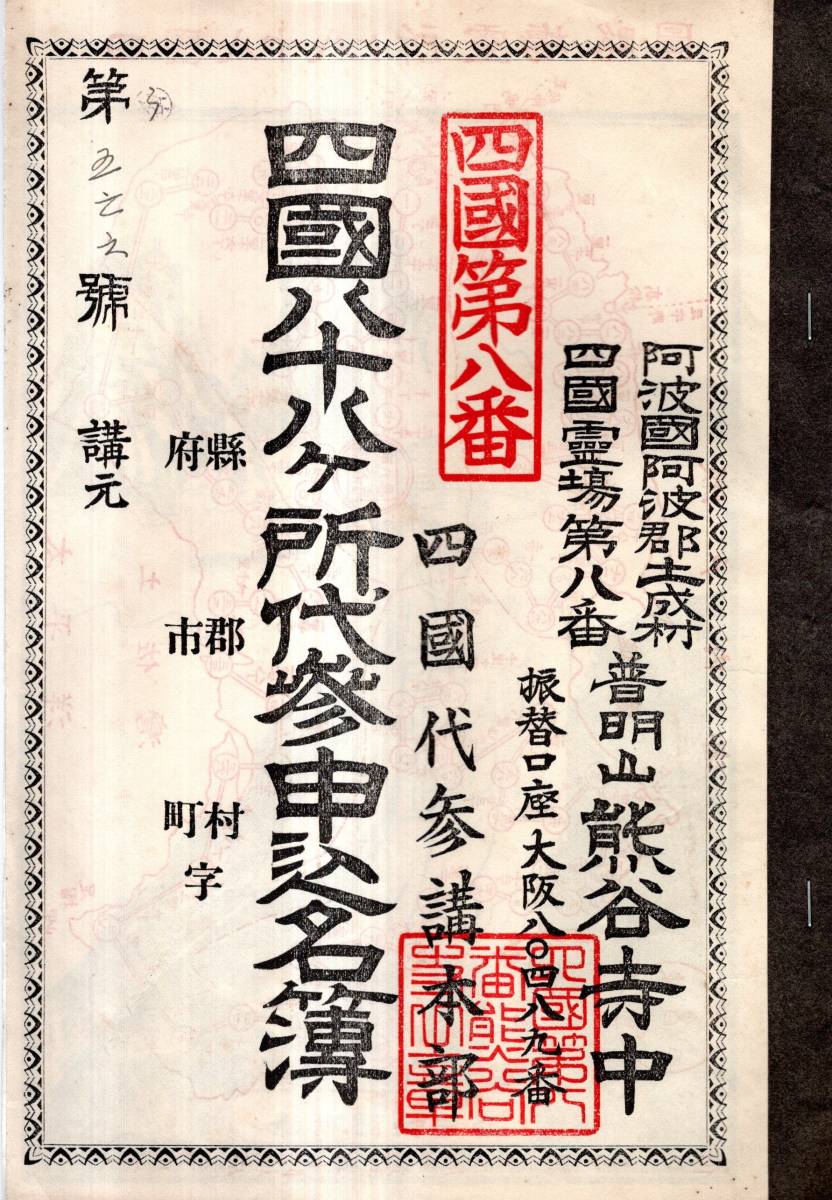 阿波國阿波郡土成村
四國靈場第八番
普明山熊谷寺中
振替口座大阪八〇四八九番
四國第八番
四國代参講本部
四國八十八ヶ所代參申込名簿
縣
府
郡
市
村
町
字
第
號
講元